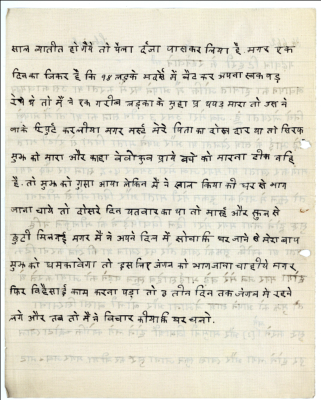 साल जातीत हो गैये तो पैला दर्जा पास कर लिया है. मगर एक
दिन का जिकर है कि १४ लड़के मदर्से में बैट कर अपना सबक पड़
रहे थे तो मैं ने एक गरीब लड़का के मुहा प्र थपड मारा तो उस ने
जाके रिपुर्ट कर दीया मगर मेरे पिता का दोस्त दार था वो सिरफ
मुझ को मारा और काहा बेवोकुब प्राये बचे को मारना ठीक नहि
है. तो मुझ को गुसा आया लेकिन में ने ख्याल किया की घर से भाग
जाना चाये तो दोसरे दिन यतवार का था तो माईं और स्कुल से
छुटी मिलगई मगर में ने अपने दिल में सोचा कि घर जाने से मेरा बाप
मुझ को धमकावेगा तो इस लिए जंगल को भाग जाना चाहीये मगर
फिर विहैसाई काम करना पड़ा तो ३ तीन दिन तक जंगल में रहने
लगे और तब तो मैं ने विचार की या कि घर चलो.